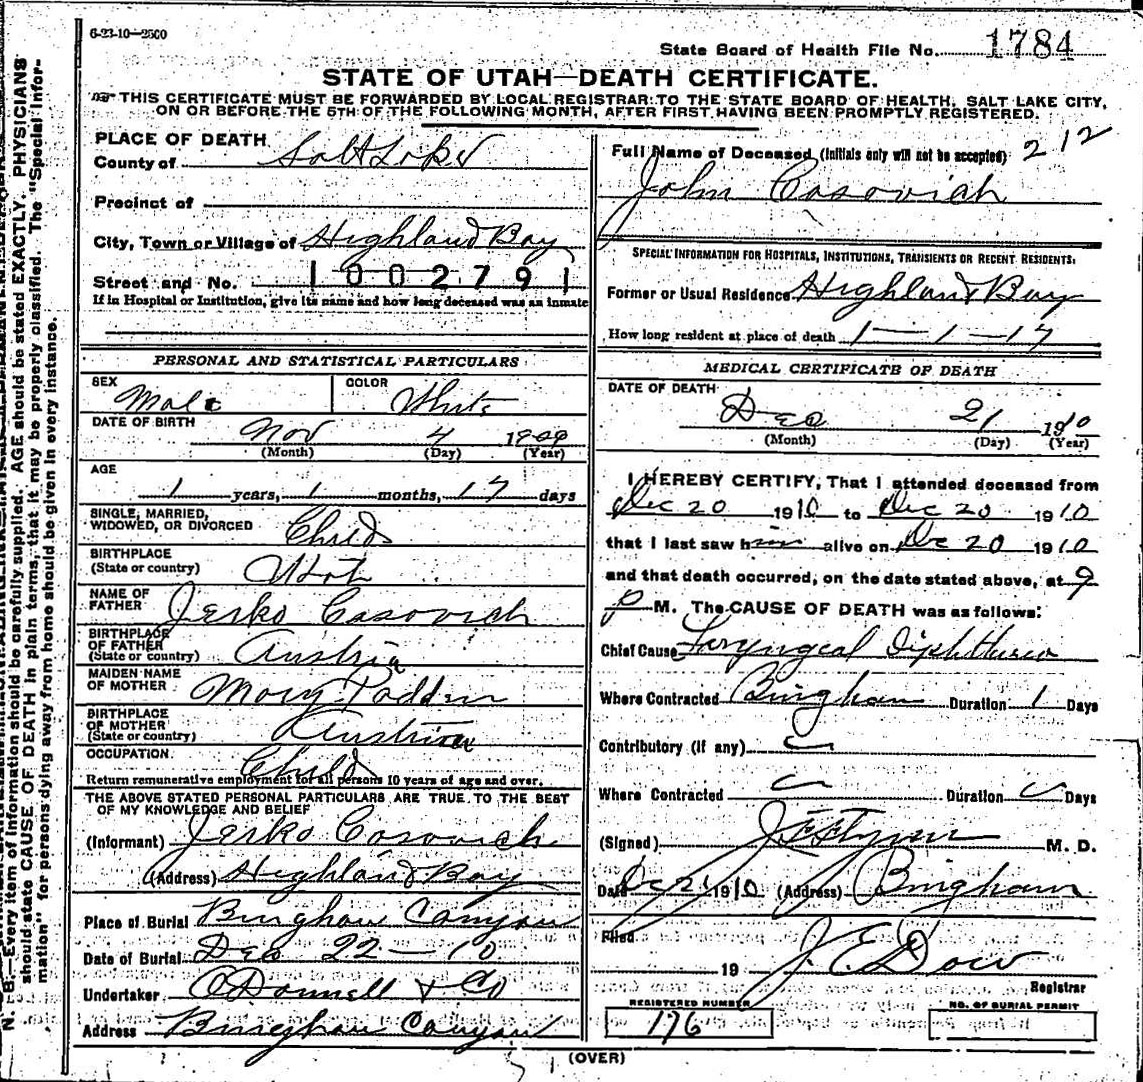 6-23-10—2500
State Board of Health File No. 1784
STATE OF UTAH—DEATH CERTIFICATE.
THIS CERTIFICATE MUST BE FORWARDED BY LOCAL REGISTRAR TO THE STATE BOARD OF HEALTH, SALT LAKE CITY,
ON OR BEFORE THE 5TH OF THE FOLLOWING MONTH, AFTER FIRST HAVING BEEN PROMPTLY REGISTERED.
PLACE OF DEATH
County of Salt Lake
Precinct of
City, Town or Village of Highland Boy
Street and No. 1002791
If in Hospital or Institution, give its name and how long deceased was an inmate
PERSONAL AND STATISTICAL PARTICULARS
SEX Male COLOR White
DATE OF BIRTH Nov 4 1909
(Month) (Day) (Year)
AGE
1 years, 1 months, 17 days
SINGLE, MARRIED,
WIDOWED, OR DIVORCED Child
BIRTHPLACE
(State or country) Utah
NAME OF
FATHER Jerko Casovich
BIRTHPLACE
OF FATHER
(State or country) Austria
MAIDEN NAME
OF MOTHER Mary
BIRTHPLACE
OF MOTHER
(State or country) Austria
OCCUPATION Child
Return remunerative employment for all persons 10 years of age and over.
THE ABOVE STATED PERSONAL PARTICULARS ARE TRUE TO THE BEST
OF MY KNOWLEDGE AND BELIEF
(Informant) Jerko Casovich
(Address) Highland Boy
Place of Burial Bingham Canyon
Date of Burial Dec 22—10
Undertaker O'Donnell & Co
Address Bingham Canyon
212
Full Name of Deceased (Initials only will not be accepted)
John Casovich
SPECIAL INFORMATION FOR HOSPITALS, INSTITUTIONS, TRANSIENTS OR RECENT RESIDENTS:
Former or Usual Residence Highland Boy
How long resident at place of death 1—1—17
MEDICAL CERTIFICATE OF DEATH
DATE OF DEATH
Dec 21 1910
(Month) (Day) (Year)
I HEREBY CERTIFY, That I attended deceased from
Dec 20 1910 to Dec 20 1910
that I last saw him alive on Dec 20 1910
and that death occurred, on the date stated above, at 9
P M. The CAUSE OF DEATH was as follows:
Chief Cause Laryngeal Diphtheria
Where Contracted Bingham Duration 1 Days
Contributory (if any)
Where Contracted Duration Days
(Signed) M. D.
Date Dec 21 1910 (Address) Bingham
Filed
19 J. E. Dow
Registrar
REGISTERED NUMBER
176
NO. OF BURIAL PERMIT
(OVER)
N. B.—Every item of information should be carefully supplied. AGE should be stated EXACTLY. PHYSICIANS
should state CAUSE OF DEATH in plain terms, that it may be properly classified. The "Special Infor-
mation" for persons dying away from home should be given in every instance.